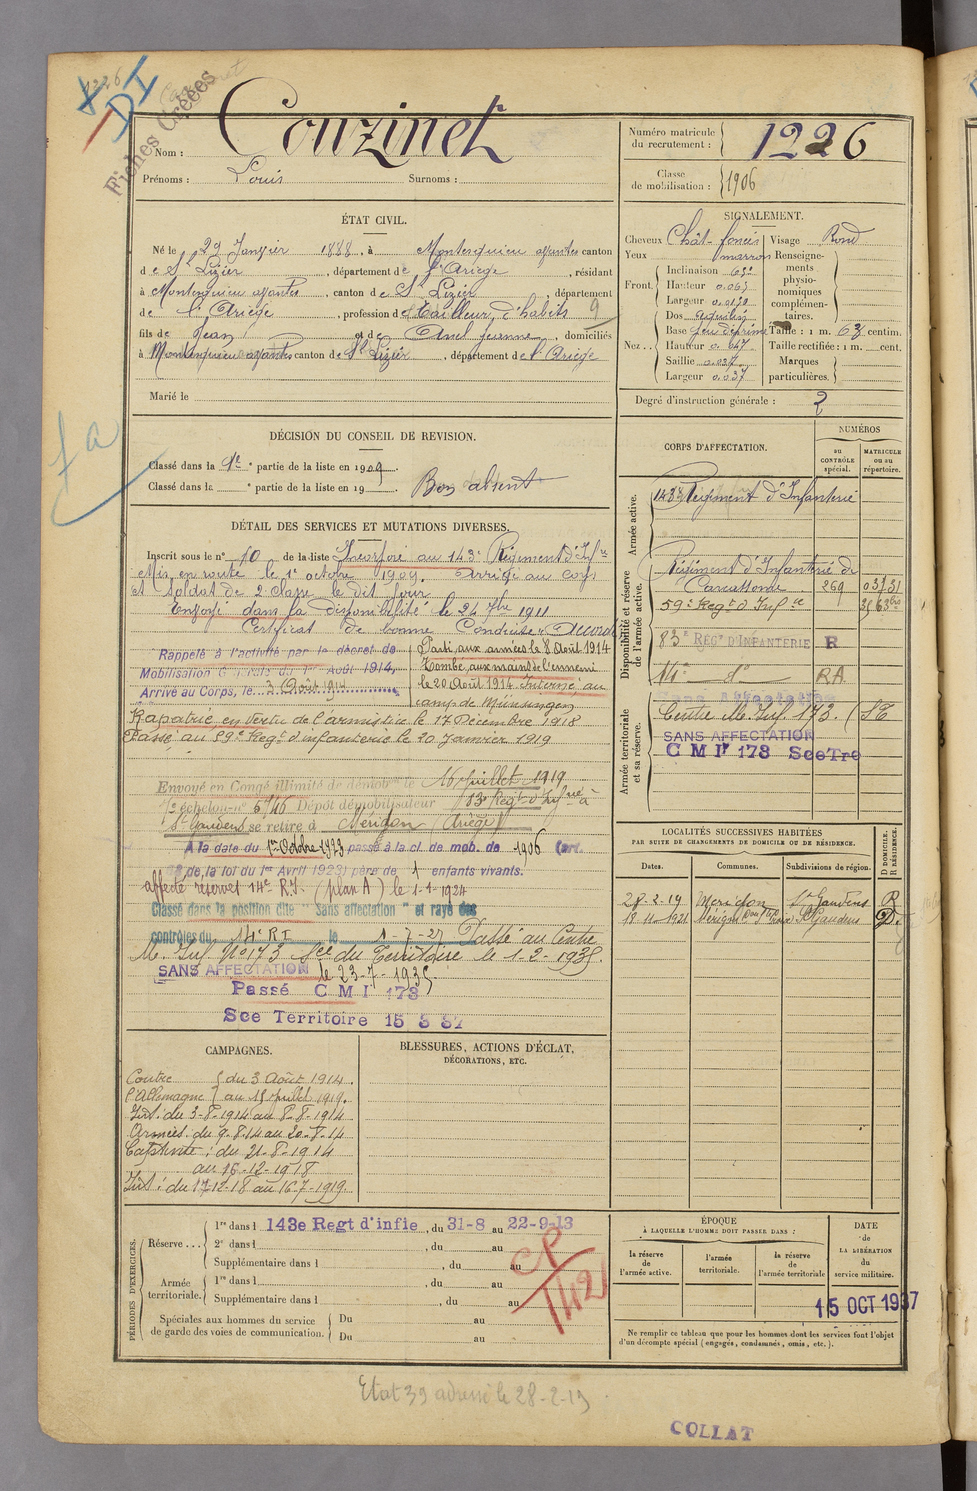 1226
DI
Fiches Créées
Nom : Couzinet
Prénoms : Louis Surnoms :
Numéro matricule du recrutement : 1226
Classe de mobilisation : 1906
ÉTAT CIVIL.
Né le 29 Janvier 1888, à Montesquieu avantès canton
de St Lizier, département de l'Ariège, résidant
à Montesquieu avantès, canton de St Lizier, département
de l'Ariège, profession de Tailleur d'habits 9
fils de Jean et de Anel Jeanne, domiciliés
à Montesquieu avantès canton de St Lizier, département de l'Ariège
Marié le
SIGNALEMENT.
Cheveux Chât-foncés
Yeux marron
Front. Inclinaison
Hauteur 0.063
Largeur
Nez. Dos aquilin
Base peu déprimé
Hauteur 0.047
Saillie 0.034
Largeur 0.037
Visage Rond
Renseignements physionomiques complémentaires.
Taille : 1 m. 63 centim.
Taille rectifiée : 1 m. cent.
Marques particulières.
Degré d'instruction générale : 2
DÉCISION DU CONSEIL DE REVISION.
Classé dans la 1re partie de la liste en 1909.
Classé dans la e partie de la liste en 19 Bon absent
fa
DÉTAIL DES SERVICES ET MUTATIONS DIVERSES.
Inscrit sous le n° 10 de la liste Incorporé au 143e Régiment d'Infie
Mis en route le 1er octobre 1909. Arrivé au corps
et soldat de 2e classe le dit jour
dans la disponibilité le 24 7bre 1911
Certificat de bonne Conduite "Accordé"
Rappelé à l'activité par le décret de
Mobilisation Générale du 1er Août 1914,
Arrivé au Corps, le 3 Août 1914
Parti aux armées le 8 Août 1914
Tombé aux mains de l'ennemi
le 20 Août 1914 Interné au
camp de Münsingen
Rapatrié en vertu de l'armistice le 17 Décembre 1918
Passé au 59e Regt d'infanterie le 20 Janvier 1919
Envoyé en Congé illimité de démobon le 16 Juillet 1919
échelon n° Dépôt démobilisateur 83e Regt d'Infrie à
St Gaudens se retire à Mérigon (Ariège)
A la date du 1er Octobre 1923 passé à la cl. de mob. de 1906 (art.
de la loi du 1er Avril 1923) père de 1 enfants vivants.
affecté réservet 14e R.I. (plan A) le 1-1-1924
Classé dans la position dite "Sans affectation" et rayé des
contrôles du 14e RI le 1-7-27 Passé au Centre
M. Inf. N°173 Sce du Territoire le 1-2-1935.
SANS AFFECTATION le 23-7-1935
Passé C M I 173
Sce Territoire 15 3 37
CORPS D'AFFECTATION.
NUMÉROS
au contrôle spécial.
matricule ou au répertoire.
Armée active.
143e Régiment d'Infanterie
Disponibilité et réserve de l'armée active.
Régiment d'Infanterie de
Carcassonne. 269 03731
59e Regt d'Infie
83e REGt D'INFANTERIE R
14e d° RA
Armée territoriale et sa réserve.
Sans Affectation
Centre M. Inf. 173. (ST
SANS AFFECTATION
C M Ir 173 Sce Tre
LOCALITÉS SUCCESSIVES HABITÉES
PAR SUITE DE CHANGEMENTS DE DOMICILE OU DE RÉSIDENCE.
Dates. Communes. Subdivisions de région. D DOMICILE. R RÉSIDENCE.
28-2-19 Merigon St Gaudens R
13 11-1921 Mérigon St Gaudens D.
CAMPAGNES.
Contre l'Allemagne { du 3 Août 1914.
au 15 Juillet 1919.
Int : du 3-8-1914 au 8-8-1914
Armées. du 9.8.14 au 20-8-14
Captivité : du 21-8-1914
au 16-12-1918
Int : du 17-12-18 au 16-7-1919.
BLESSURES, ACTIONS D'ÉCLAT,
DÉCORATIONS, ETC.
PÉRIODES D'EXERCICES.
Réserve ... 1re dans l 143e Regt d'infie, du 31-8 au 22-9-13
2e dans l , du au
Supplémentaire dans l , du au
Armée territoriale. 1re dans l , du au
Supplémentaire dans l , du au
Spéciales aux hommes du service de garde des voies de communication. Du au
Du au
ÉPOQUE
À LAQUELLE L'HOMME DOIT PASSER DANS :
la réserve de l'armée active.
l'armée territoriale.
la réserve de l'armée territoriale
DATE
de
LA LIBÉRATION
du
service militaire.
15 OCT 1937
Ne remplir ce tableau que pour les hommes dont les services font l'objet
d'un décompte spécial (engagés, condamnés, omis, etc.).
Etat 39 adressé le 28-2-19
COLLAT